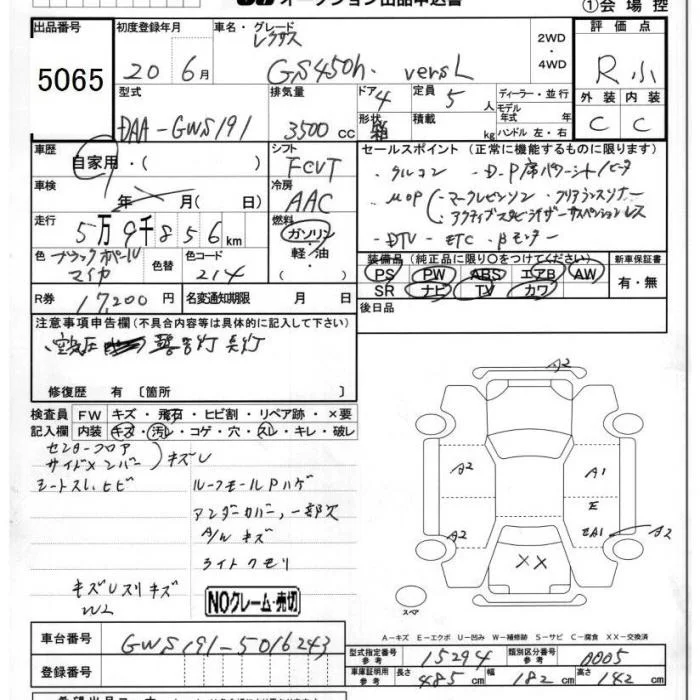 オークション出品申込書
①会場控
出品番号
5065
初度登録年月
20 6月
車名・グレード
レクサス
GS450h. versL
2WD
・
4WD
評価点
R小
外装 内装
C C
型式
DAA-GWS191
排気量
3500cc
ドア 4
形状 箱
定員 5人
積載 kg
ディーラー・並行
モデル年式 年
ハンドル 左・右
車歴
自家用・( )
シフト
FCVT
車検
年 月( 日)
冷房
AAC
走行
5万9千856km
燃料
ガソリン
・
軽油
・
色 ブラックオパールマイカ
色替
色コード
214
R券 17,200円
名変通知期限 月 日
セールスポイント(正常に機能するものに限ります)
・クルコン ・D・P席パワーシート/ヒータ
・MOP(・マークレビンソン ・クリアランスソナー
・アクティブスタビライザーサスペンションレス
・DTV ・ETC ・Bモニター
装備品(純正品に限り○をつけてください)
新車保証書
PS PW ABS エアB AW
SR ナビ TV カワ
有・無
後日品
注意事項申告欄(不具合内容等は具体的に記入して下さい)
警告灯 点灯
修復歴 有〔箇所 〕
検査員 FW キズ・飛石・ヒビ割・リペア跡・×要
記入欄 内装 キズ・汚レ・コゲ・穴・スレ・キレ・破レ
センターフロア
サイドメンバー)キズU
シートスレ、ヒビ
ルーフモールPハゲ
アンダーカバー、一部欠
A/Wキズ
ライトクモリ
キズUスリキズ
W2
NOクレーム・売切
A2
A2 A1
E
A2 EA1 A2
XX
スペア
A−キズ E−エクボ U−凹み W−補修跡 S−サビ C−腐食 XX−交換済
車台番号 GWS191-5016243
登録番号
型式指定番号 参考 15294
類別区分番号 参考 0005
車庫証明用 参考 長さ 485cm 幅 182cm 高さ 142cm